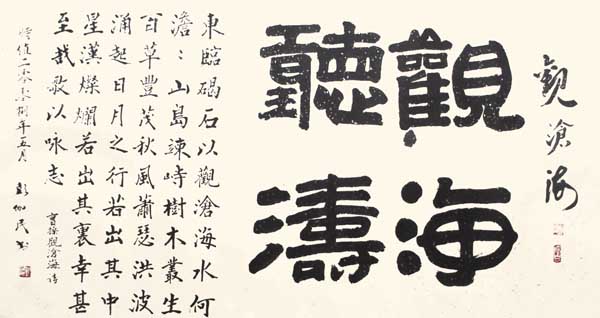 觀滄海
觀海
聽濤
東臨碣石以觀滄海水何
澹：山島竦峙樹木叢生
百草豐茂秋風蕭瑟洪波
涌起日月之行若出其中
星漢燦爛若出其裏幸甚
至哉歌以咏志
曹操觀滄海诗
值二零捌年五月